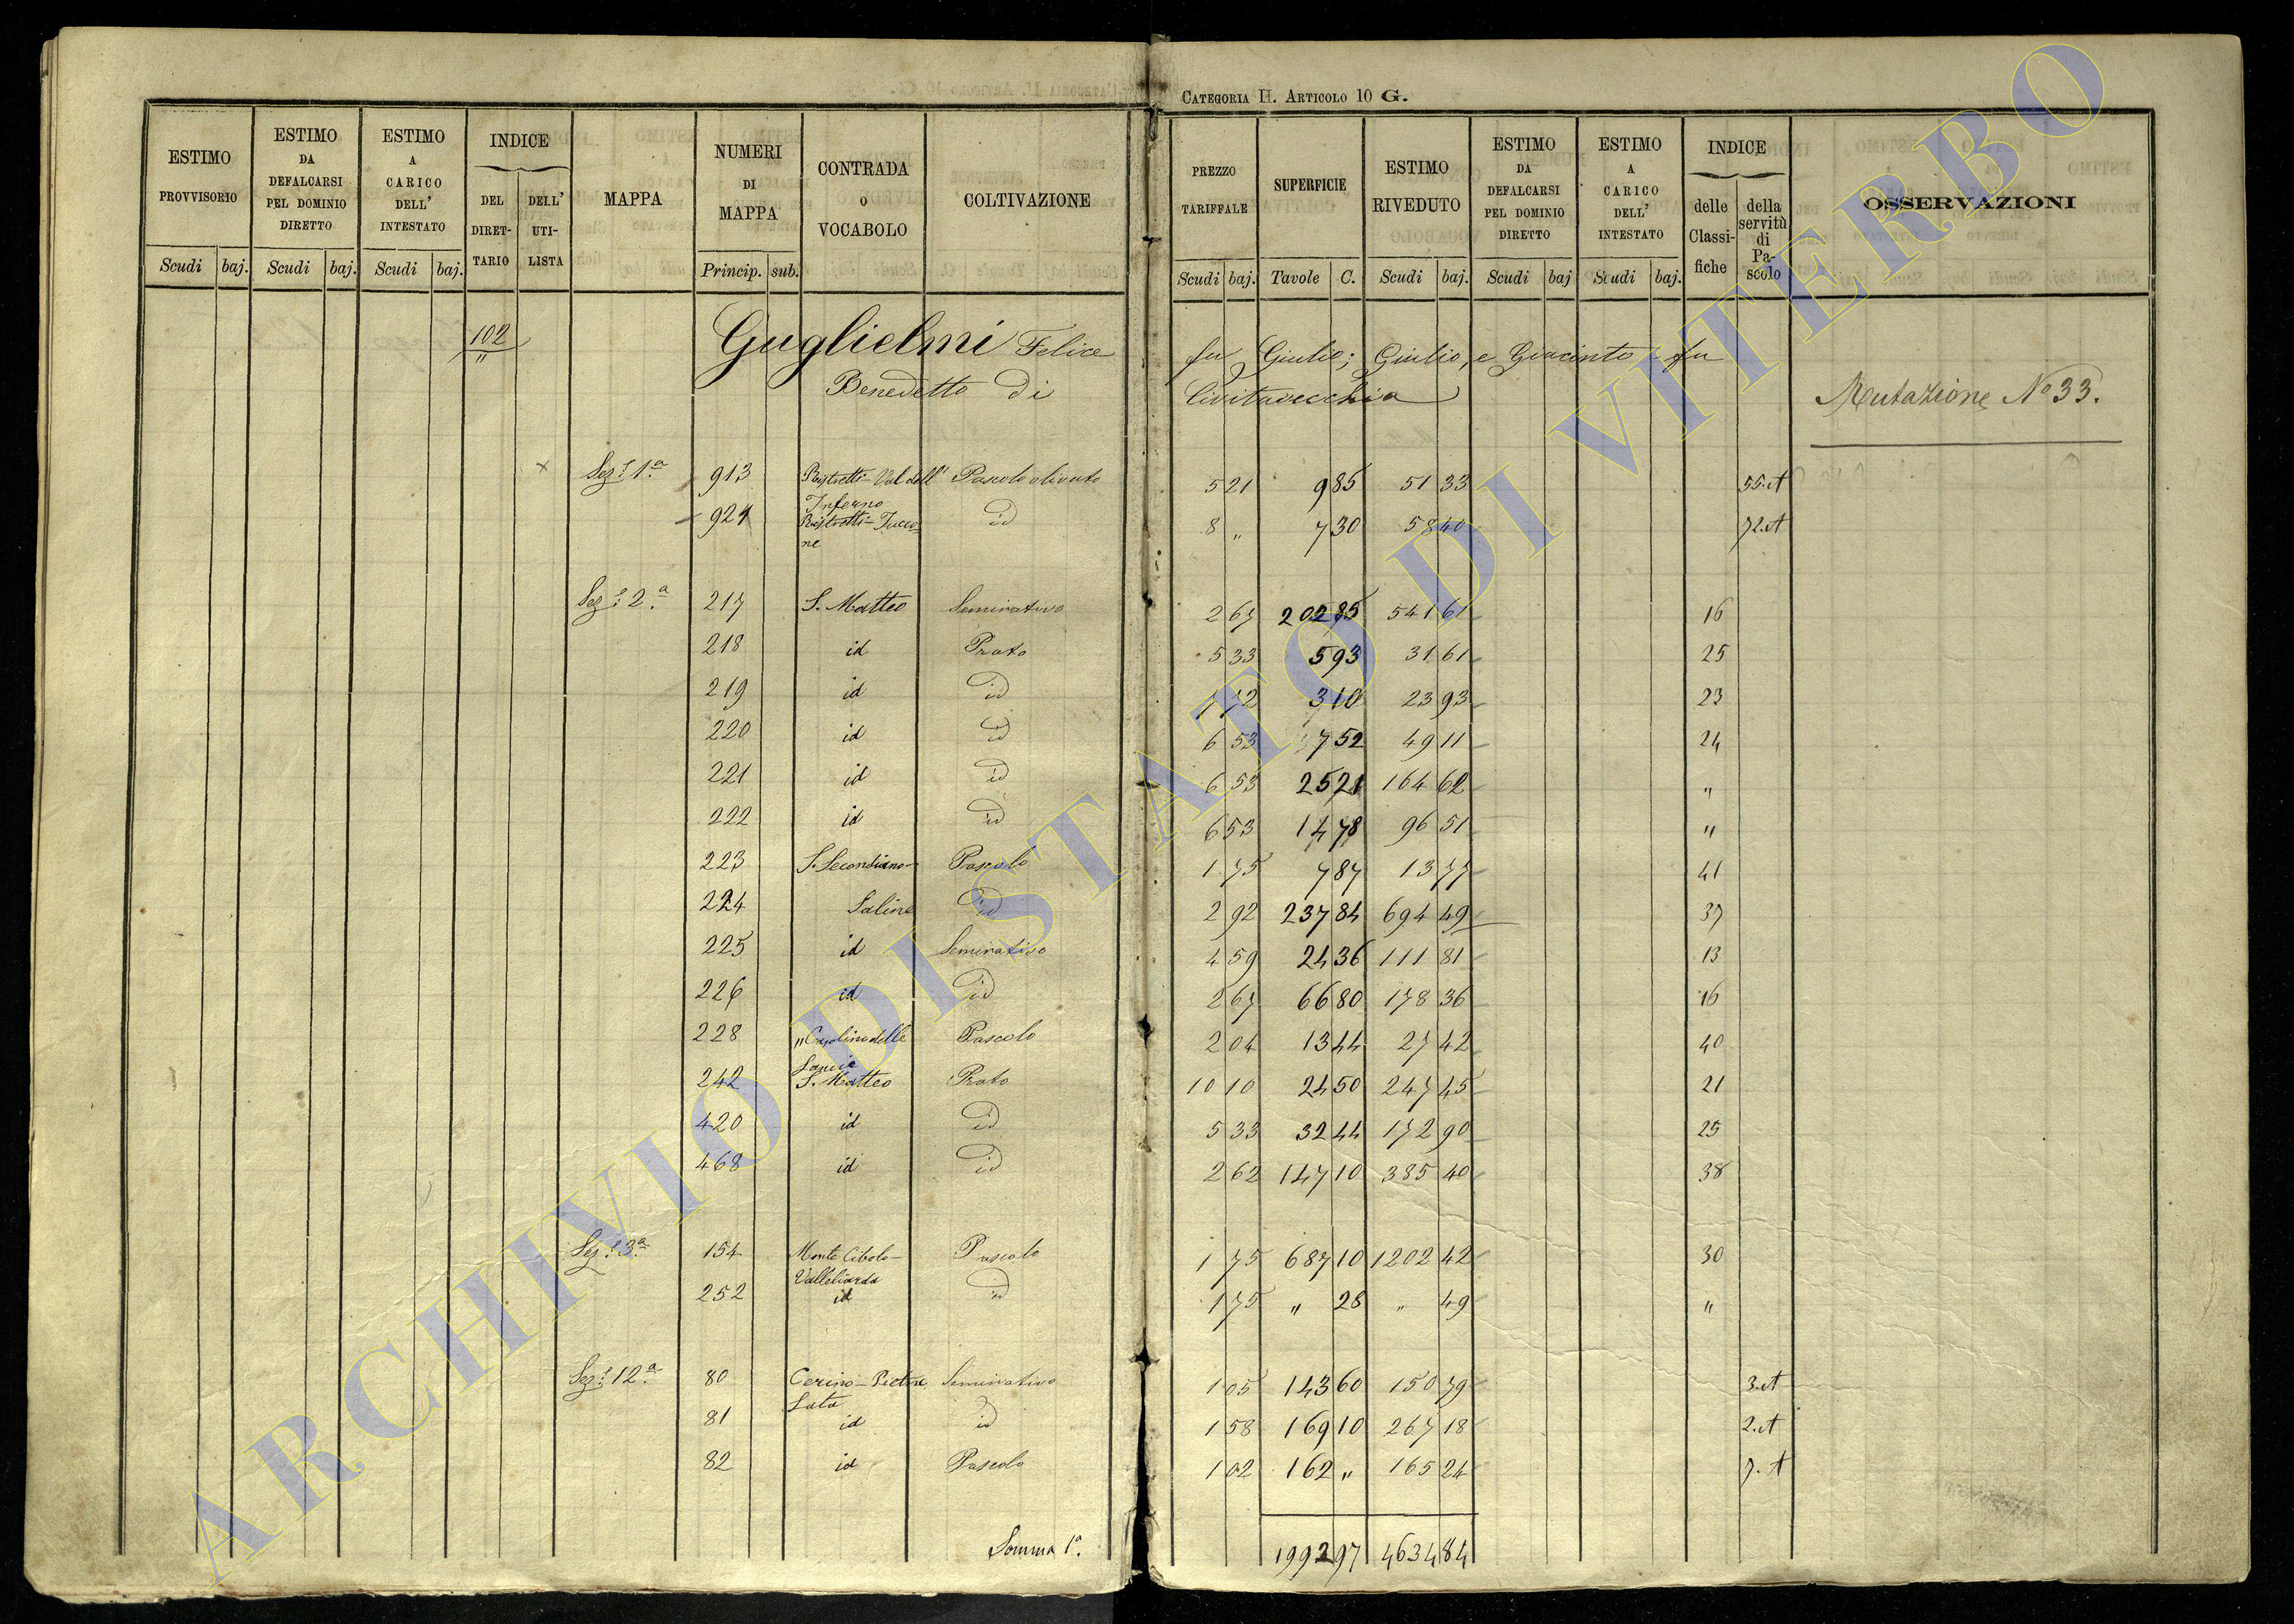 CATEGORIA II. ARTICOLO 10 G.
ESTIMO PROVVISORIO Scudi baj.
ESTIMO DA DEFALCARSI PEL DOMINIO DIRETTO Scudi baj.
ESTIMO A CARICO DELL' INTESTATO Scudi baj.
INDICE DEL DIRET-TARIO DELL' UTI-LISTA
MAPPA
NUMERI DI MAPPA Princip. sub.
CONTRADA O VOCABOLO
COLTIVAZIONE
PREZZO TARIFFALE Scudi baj.
SUPERFICIE Tavole C.
ESTIMO RIVEDUTO Scudi baj.
ESTIMO DA DEFALCARSI PEL DOMINIO DIRETTO Scudi baj
ESTIMO A CARICO DELL' INTESTATO Scudi baj.
INDICE delle Classi-fiche della servitù di Pa-scolo
OSSERVAZIONI
102 Guglielmi Felice fu Giulio; Giulio, e Giacinto fu
"
Benedetto di Civitavecchia
Mutazione No 33.
Sez.e 1a 913 Ristretti - Val dell' Pascolo olivato 5 21 9 85 51 33 55.A
Inferno
921 id 8 " 7 30 58 40 72.A
ne
Sez.e 2.a 217 S. Matteo Seminativo 2 67 202 85 541 61 16
218 id Prato 5 33 5 93 31 61 25
219 id id 7 72 3 10 23 93 23
220 id id 6 53 7 52 49 11 24
221 id id 6 53 25 21 164 62 "
222 id id 6 53 14 78 96 51 "
223 S. Secondiano - Pascolo 1 75 7 87 13 77 41
224 Saline id 2 92 237 84 694 49 37
225 id Seminativo 4 59 24 36 111 81 13
226 id id 2 67 66 80 178 36 16
228 "Casalino delle Pascolo 2 04 13 44 27 42 40
242 S. Matteo Prato 10 10 24 50 247 45 21
420 id id 5 33 32 44 172 90 25
468 id id 2 62 147 10 385 40 38
Sez.e 3.a 154 Monte Cibolo - Pascolo 1 75 687 10 1202 42 30
252 id id 1 75 " 28 " 49 "
Sez.e 12.a 80 Cerino - Seminativo 1 05 143 60 150 79 3.A
81 id id 1 58 169 10 267 18 2.A
82 id Pascolo 1 02 162 " 165 24 7.A
Somma 1a. 1992 97 4634 84
ARCHIVIO DI STATO DI VITERBO